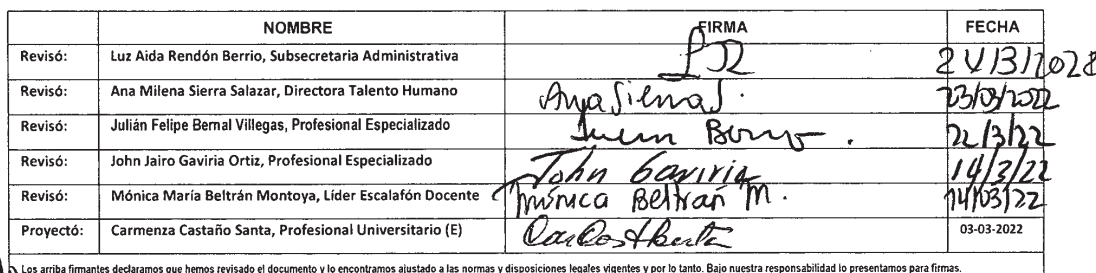 NOMBRE FIRMA FECHA
Revisó: Luz Aida Rendón Berrio, Subsecretaria Administrativa
Revisó: Ana Milena Sierra Salazar, Directora Talento Humano AnaSierraS. 23/03/2022
Revisó: Julián Felipe Bernal Villegas, Profesional Especializado 22/3/22
Revisó: John Jairo Gaviria Ortiz, Profesional Especializado John Gaviria 14/3/22
Revisó: Mónica María Beltrán Montoya, Líder Escalafón Docente Mónica Beltrán M. 14/03/22
Proyectó: Carmenza Castaño Santa, Profesional Universitario (E) 03-03-2022
Los arriba firmantes declaramos que hemos revisado el documento y lo encontramos ajustado a las normas y disposiciones legales vigentes y por lo tanto. Bajo nuestra responsabilidad lo presentamos para firmas.